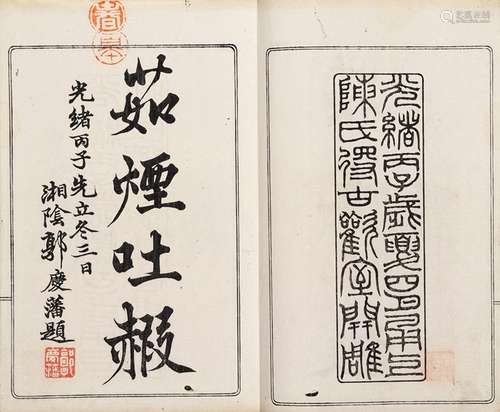 光緒丙子歲夏四月甬上
陳氏復古歡室開雕
茹煙吐赮
光緒丙子先立冬三日
湘陰郭慶藩題